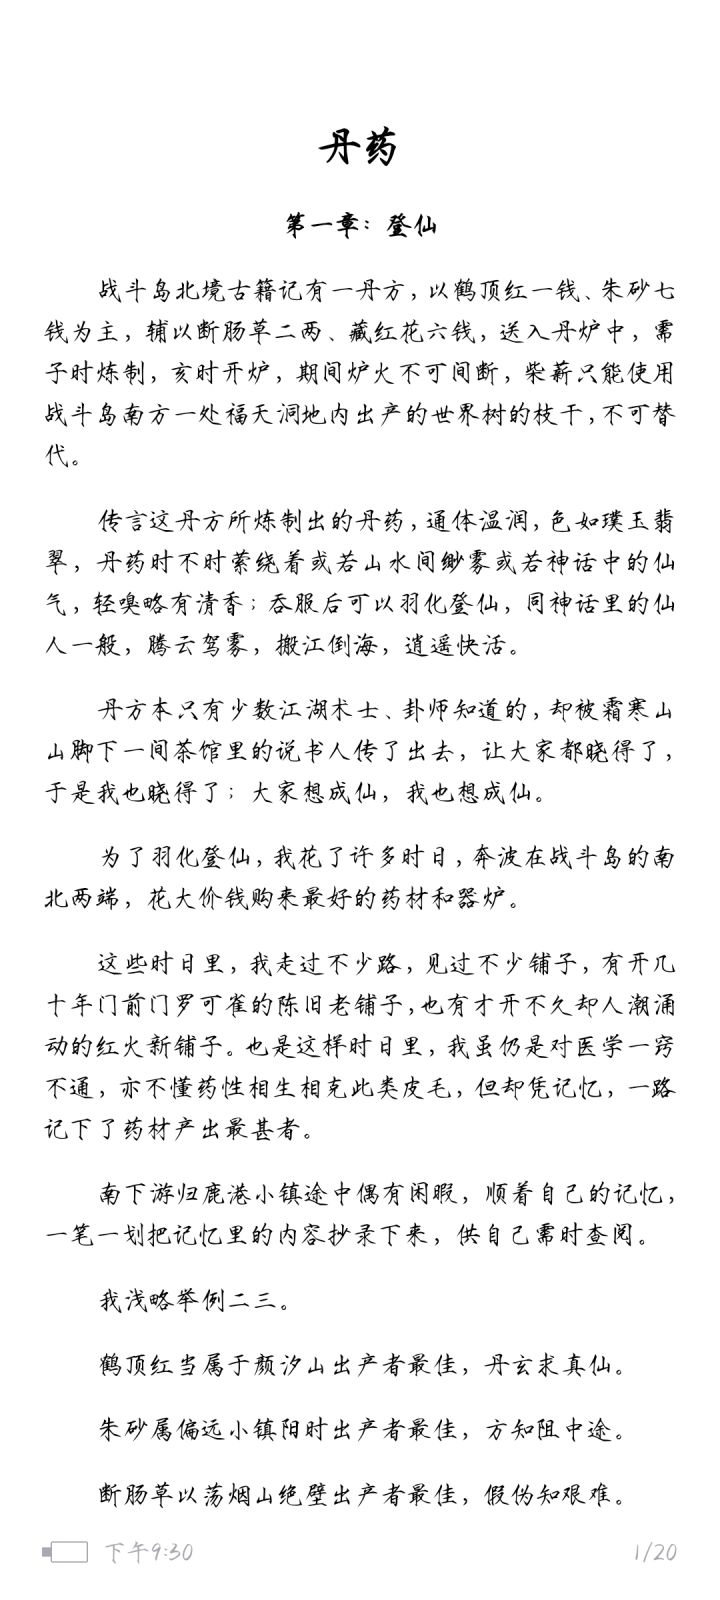 丹药
第一章：登仙
战斗岛北境古籍记有一丹方，以鹤顶红一钱、朱砂七
钱为主，辅以断肠草二两、藏红花六钱，送入丹炉中，需
子时炼制，亥时开炉，期间炉火不可间断，柴薪只能使用
战斗岛南方一处福天洞地内出产的世界树的枝干，不可替
代。
传言这丹方所炼制出的丹药，通体温润，色如璞玉翡
翠，丹药时不时萦绕着或若山水间缈雾或若神话中的仙
气，轻嗅略有清香；吞服后可以羽化登仙，同神话里的仙
人一般，腾云驾雾，搬江倒海，逍遥快活。
丹方本只有少数江湖术士、卦师知道的，却被霜寒山
山脚下一间茶馆里的说书人传了出去，让大家都晓得了，
于是我也晓得了；大家想成仙，我也想成仙。
为了羽化登仙，我花了许多时日，奔波在战斗岛的南
北两端，花大价钱购来最好的药材和器炉。
这些时日里，我走过不少路，见过不少铺子，有开几
十年门前门罗可雀的陈旧老铺子，也有才开不久却人潮涌
动的红火新铺子。也是这样时日里，我虽仍是对医学一窍
不通，亦不懂药性相生相克此类皮毛，但却凭记忆，一路
记下了药材产出最甚者。
南下游归鹿港小镇途中偶有闲暇，顺着自己的记忆，
一笔一划把记忆里的内容抄录下来，供自己需时查阅。
我浅略举例二三。
鹤顶红当属于颜汐山出产者最佳，丹玄求真仙。
朱砂属偏远小镇阳时出产者最佳，方知阻中途。
断肠草以荡烟山绝壁出产者最佳，假伪知艰难。
下午9:30
1/20